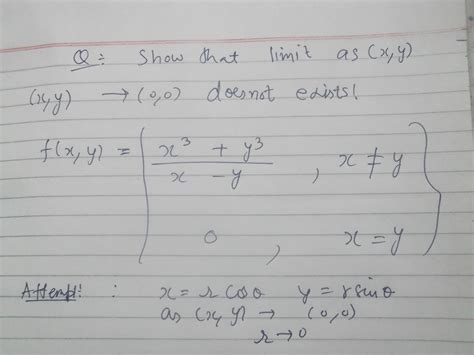 Q: Show that limit as (x,y)
(x,y) → (0,0) doesnot exists!
f(x,y) = { (x³ + y³)/(x - y) , x ≠ y
0 , x = y }
Attempt: : x = r cosθ y = r sinθ
as (x,y) → (0,0)
r → 0